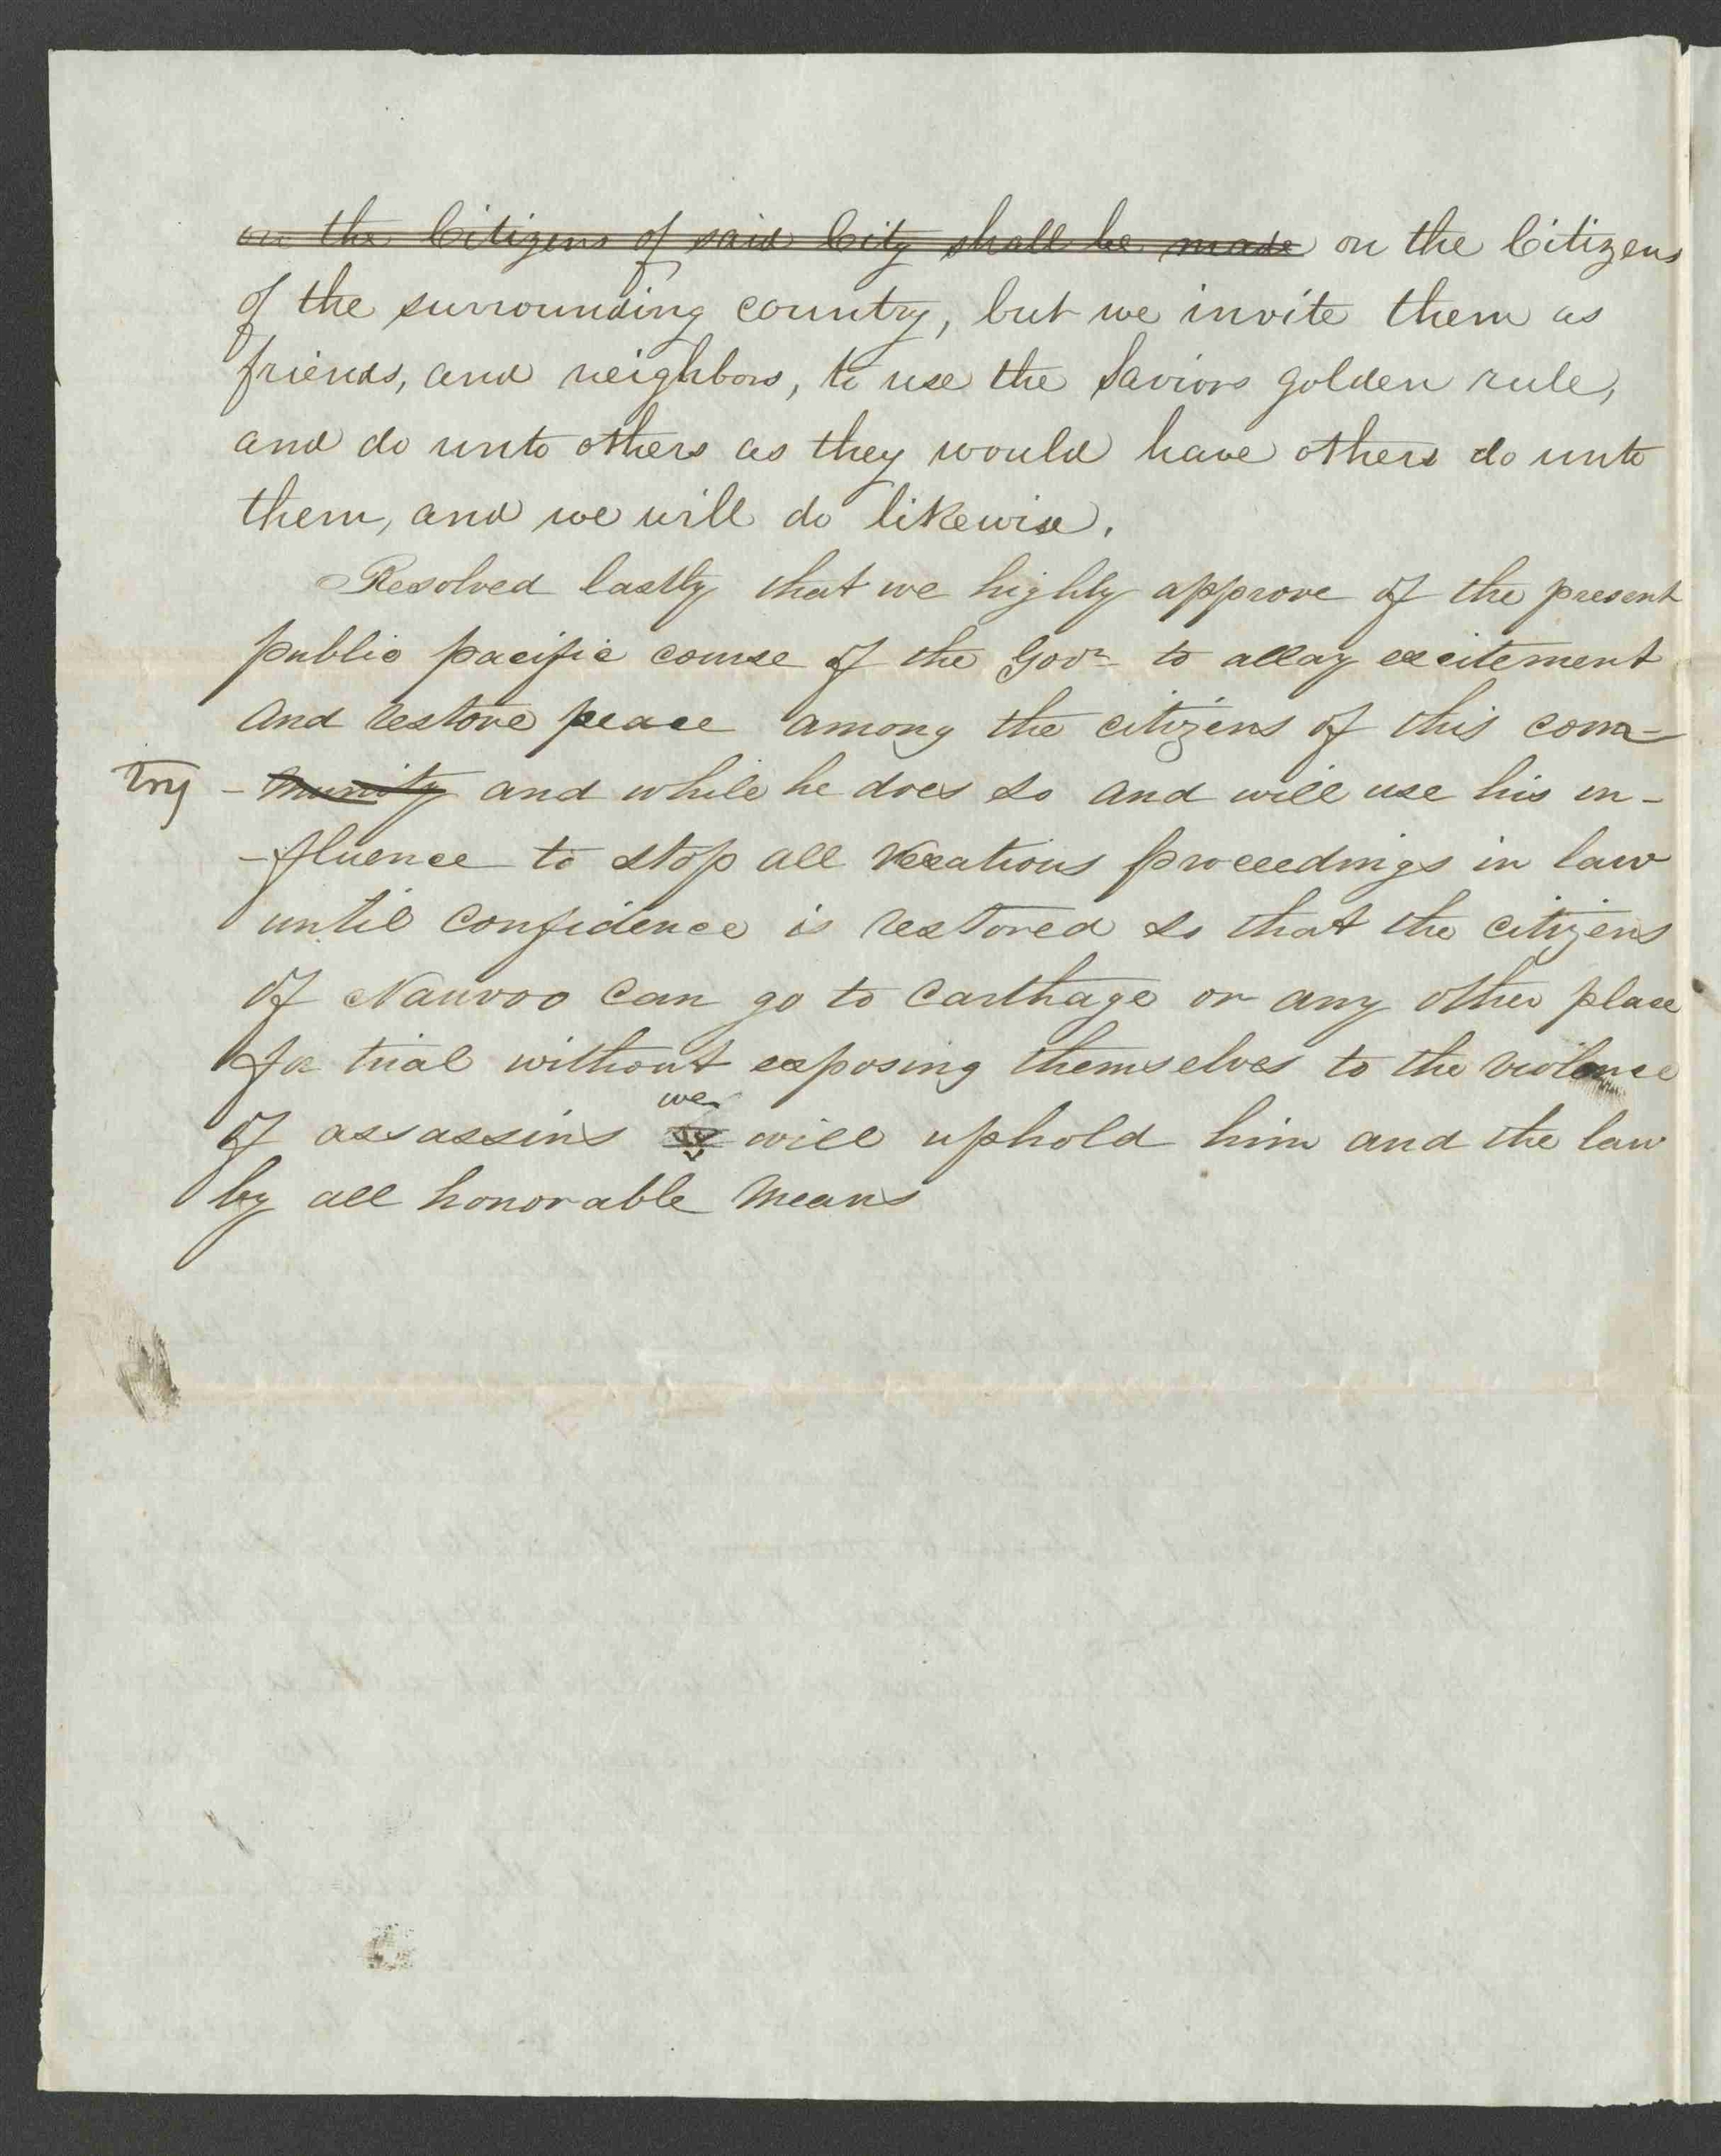 on the Citizens of said City shall be made on the Citizens
of the surrounding country, but we invite them as
friends, and neighbors, to use the Saviors golden rule,
and do unto others as they would have others do unto
them, and we will do likewise.
Resolved lastly that we highly approve of the present
public pacific course of the Govr to allay excitement
and restore peace among the citizens of this com-
try - munity and while he does so and will use his in-
-fluence to stop all vexatious proceedings in law
until confidence is restored so that the citizens
of Nauvoo can go to Carthage or any other place
for trial without exposing themselves to the violence
we
of assassins will uphold him and the law
by all honorable means